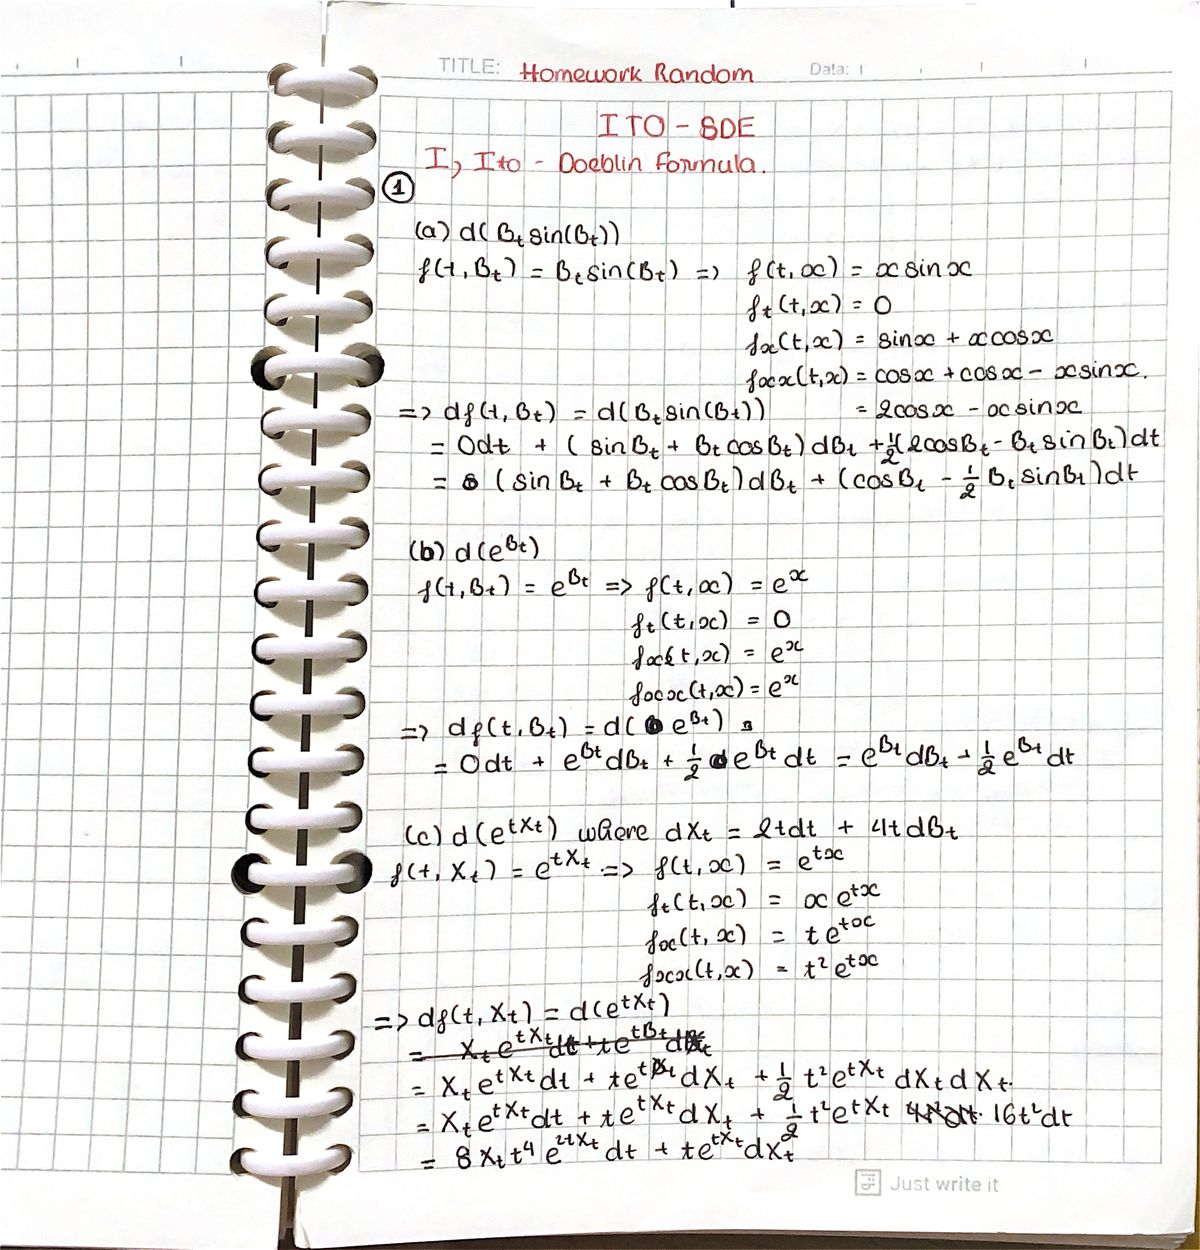 TITLE: Homework Random Data:
ITO - SDE
I, Ito - Doeblin Formula.
①
(a) d(B_t sin(B_t))
f(t, B_t) = B_t sin(B_t) => f(t, x) = x sin x
f_t(t, x) = 0
f_x(t, x) = sin x + x cos x
f_xx(t, x) = cos x + cos x - x sin x.
=> df(t, B_t) = d(B_t sin(B_t)) = 2cos x - x sin x
= 0dt + (sin B_t + B_t cos B_t) dB_t + 1/2(2cos B_t - B_t sin B_t) dt
= (sin B_t + B_t cos B_t) dB_t + (cos B_t - 1/2 B_t sin B_t) dt
(b) d(e^{B_t})
f(t, B_t) = e^{B_t} => f(t, x) = e^x
f_t(t, x) = 0
f_x(t, x) = e^x
f_xx(t, x) = e^x
=> df(t, B_t) = d(e^{B_t})
= 0dt + e^{B_t} dB_t + 1/2 e^{B_t} dt = e^{B_t} dB_t + 1/2 e^{B_t} dt
(c) d(e^{tX_t}) where dX_t = 2tdt + 4tdB_t
f(t, X_t) = e^{tX_t} => f(t, x) = e^{tx}
f_t(t, x) = x e^{tx}
f_x(t, x) = t e^{tx}
f_xx(t, x) = t² e^{tx}
=> df(t, X_t) = d(e^{tX_t})
= X_t e^{tX_t} dt + te^{tB_t}
= X_t e^{tX_t} dt + te^{tX_t} dX_t + 1/2 t² e^{tX_t} dX_t dX_t.
= X_t e^{tX_t} dt + te^{tX_t} dX_t + 1/2 t² e^{tX_t} 16t² dt
= 8X_t t⁴ e^{2tX_t} dt + te^{tX_t} dX_t²
Just write it